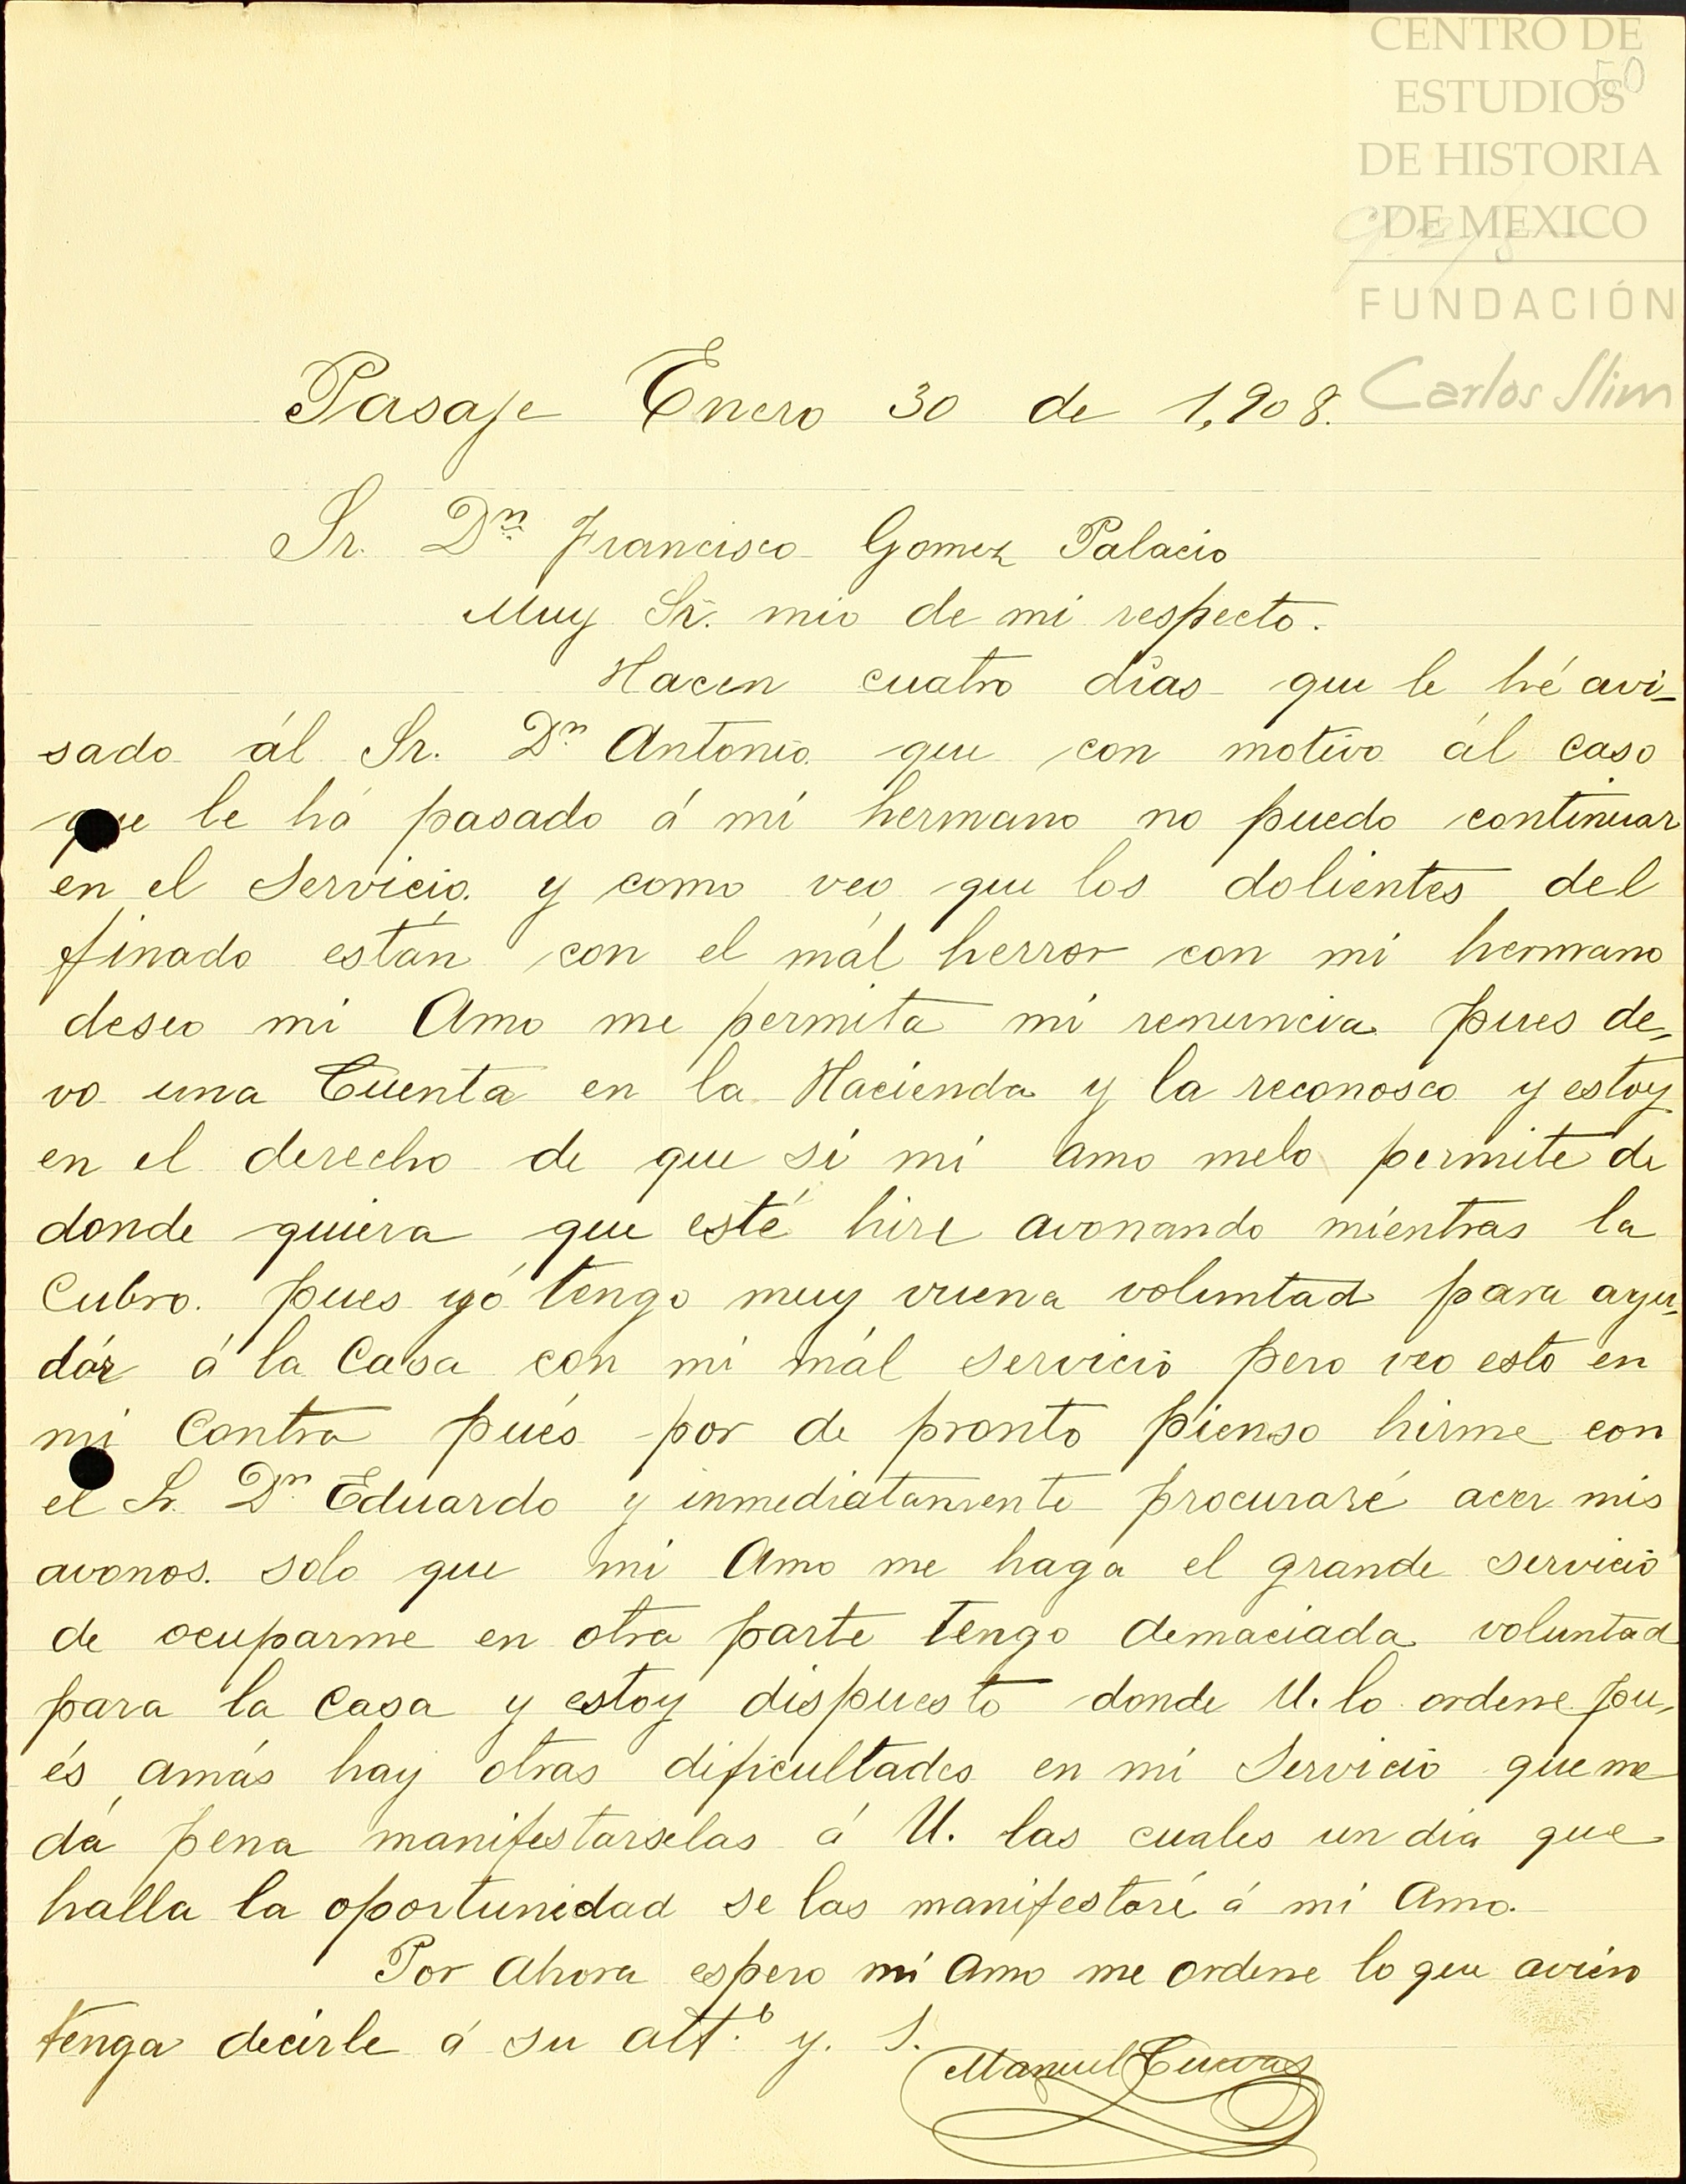 CENTRO DE
50
ESTUDIOS
DE HISTORIA
DE MEXICO
FUNDACIÓN
Carlos Slim
Pasaje Enero 30 de 1,908.
Sr. Dn. Francisco Gomez Palacio
Muy Sr. mio de mi respecto.
Hacen cuatro dias que le hé avi-
sado ál Sr. Dn. Antonio que con motivo ál caso
que le há pasado á mi hermano no puedo continuar
en el Servicio. y como veo que los dolientes del
finado están con el mál herror con mi hermano
deseo mi Amo me permita mi renuncia pues de-
vo una Cuenta en la Hacienda y la reconosco y estoy
en el derecho de que si mi amo melo permite de
donde quiera que esté hire avonando mientras la
Cubro. pues yó tengo muy vuena voluntad para ayu-
dár á la Casa con mi mál servicio pero veo esto en
mi Contra pués por de pronto pienso hirme con
el Sr. Dn. Eduardo y inmediatamente procuraré acer mis
avonos. solo que mi Amo me haga el grande servicio
de ocuparme en otra parte tengo demaciada voluntad
para la Casa y estoy dispuesto donde U. lo ordene pu-
és amás hay otras dificultades en mi Servicio que me
dá pena manifestarselas á U. las cuales un dia que
halla la oportunidad se las manifestaré á mi Amo.
Por Ahora espero mi Amo me ordene lo que avien
tenga decirle á su att.o y. S.
Manuel Cuevas